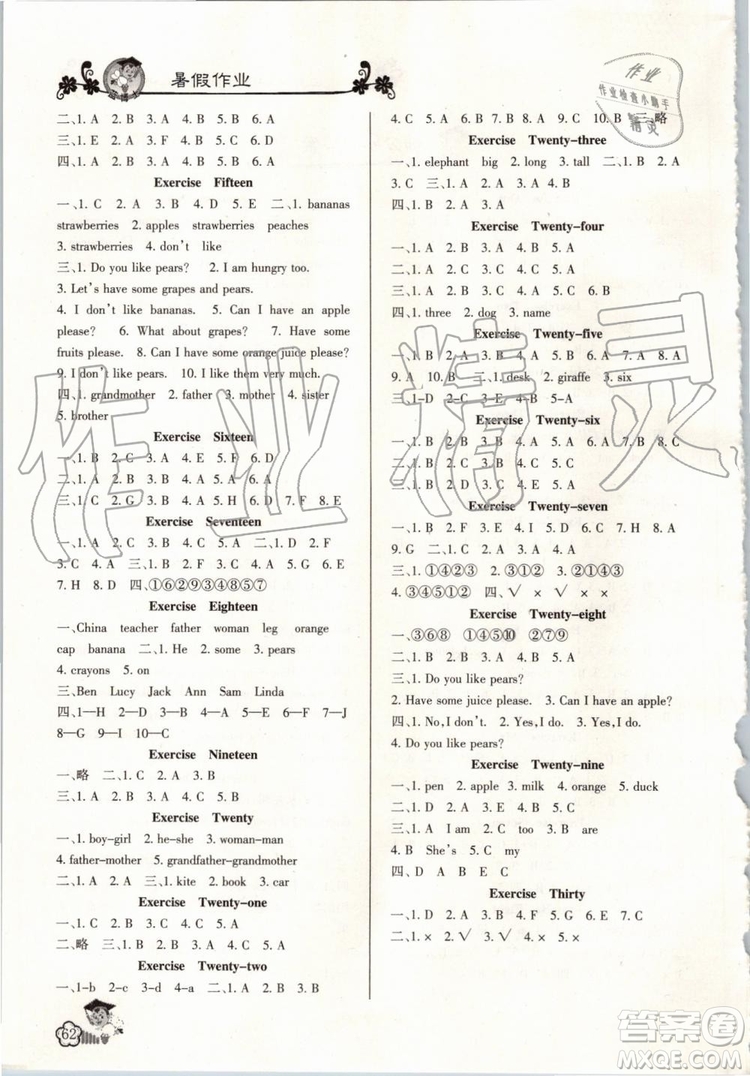 暑假作业
二、1. A 2. B 3. A 4. B 5. A
三、1. E 2. A 3. B 4. C 5. D
四、1. A 2. B 3. A 4. B 5. A
Exercise Fifteen
一、1. C 2. A 3. B 4. D 二、1. bananas
strawberries 2. apples strawberries peaches
3. strawberries 4. don't like
三、1. Do you like pears? 2. I am hungry too.
3. Let's have some grapes and pears.
4. I don't like bananas. 5. Can I have an apple
please? 6. What about grapes? 7. Have some
fruits please. 8. Can I have some orange juice please?
9. I don't like pears. 10. I like them very much.
四、1. grandmother 2. father 3. mother 4. sister
5. brother
Exercise Sixteen
一、1. B 2. C 3. A 4. E 5. F 6. D
二、1. A 2. B 3. B 4. A 5. C
三、1. C 2. G 3. B 4. A 5. H 6. D 7. F 8. E
Exercise Seventeen
一、1. A 2. C 3. C 4. A 二、1. D 2. F
3. C 4. A 三、1. B 2. F 3. A 4. C 5. G 6. E
7. H 8. D 四、①⑥②⑨③④⑧⑤⑦
Exercise Eighteen
一、China teacher father woman leg orange
cap banana 二、1. He 2. some 3. pears
4. crayons 5. on
三、Ben Lucy Jack Ann Sam Linda
四、1—H 2—D 3—A 4—B 5—I 6—F 7—J
8—G 9—E 10—C
Exercise Nineteen
一、略 二、1. C 2. A 3. B 4. C 5. B
三、1. A 2. B 3. A 4. A 5. B
Exercise Twenty
一、1. boy-girl 2. he-she 3. woman-man
4. father-mother 5. grandfather-grandmother
二、1. C 2. A 三、1. kite 2. book 3. car
Exercise Twenty-one
一、1. C 2. B 3. A 4. B 5. A
二、略 三、1. B 2. A 3. A 4. B 5. A
Exercise Twenty-two
一、1-b 2-c 3-d 4-a 二、1. B 2. C 3. B
62
4. C 5. A 6. B 7. B 8. A 9. C 10. B 三、略
Exercise Twenty-three
一、1. elephant big 2. long 3. tall 二、1. B 2. A
3. C 三、1. B 2. A 3. A 4. B
四、1. B 2. A 3. A 4. A 5. B
Exercise Twenty-four
一、1. A 2. A 3. B 4. B 5. A
二、1. B 2. A 3. B 4. B 5. A
三、1. A 2. B 3. A 4. C 5. C 6. B
四、1. three 2. dog 3. name
Exercise Twenty-five
一、1. B 2. A 3. B 4. A 5. B 6. A 7. A 8. B
9. A 10. B 二、1. desk 2. giraffe 3. six
三、1-D 2-C 3-E 4-B 5-A
Exercise Twenty-six
一、1. B 2. C 3. B 4. A 5. A 6. B 7. B 8. C
二、1. A 2. B 3. A 4. B 5. A
三、1. B 2. B 3. C 4. A 5. A
Exercise Twenty-seven
一、1. B 2. F 3. E 4. I 5. D 6. A 7. C 8. H
9. G 二、1. A 2. B 3. A 4. B 5. C
三、1. ①④②③ 2. ③④①② 3. ②①④③
4. ③④⑤①② 四、√ × √ × ×
Exercise Twenty-eight
一、③⑥⑧ ①④⑤⑩ ②⑦⑨
二、1. B 2. B 3. A 4. B 5. B
三、1. Do you like pears?
2. Have some juice please. 3. Can I have an apple?
四、1. No, I don't. 2. Yes, I do. 3. Yes, I do.
4. Do you like pears?
Exercise Twenty-nine
一、1. pen 2. apple 3. milk 4. orange 5. duck
二、1. D 2. A 3. D 4. C 5. D
三、1. A I am 2. C too 3. B are
4. B She's 5. C my
四、D A B E C
Exercise Thirty
一、1. D 2. A 3. B 4. F 5. G 6. E 7. C
二、1. × 2. √ 3. √ 4. × 5. √
作业
作业检查小助手
精灵
作业精灵
答案圈
MXQE.COM